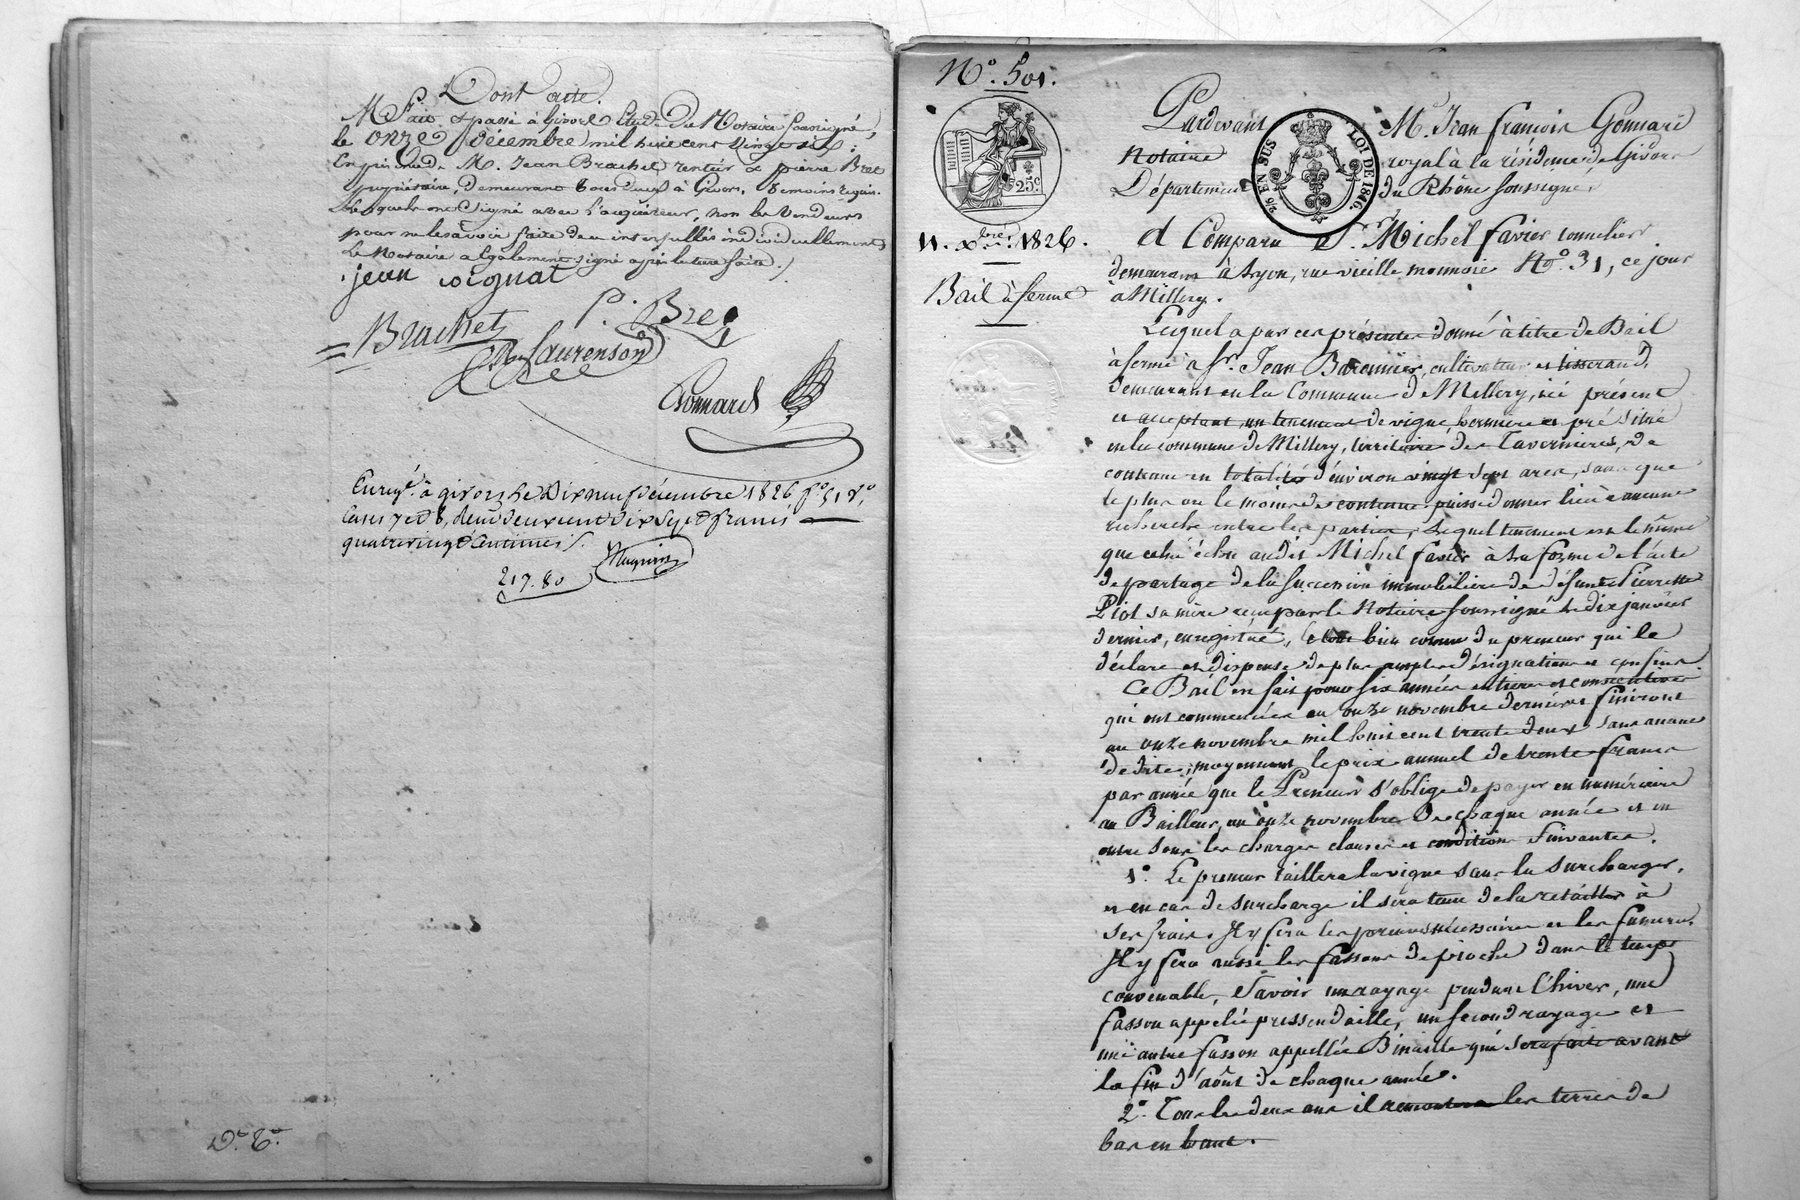 Dont acte.
Fait & passé à Givors Etude du Notaire soussigné,
le onze décembre mil huit cent vingt six;
En présence de M. Jean Brachet rentier & pierre Bret
propriétaire, demeurant tous deux à Givors, témoins requis.
Lesquels ont signé avec l'acquéreur, non les vendeurs
pour ne le savoir faite de ce interpellés individuellement
Le Notaire a également signé après lecture faite ./.
jean cognat
P. Bret
Brachet
Laurenson
Gonnard
Enregé. à givors le Dix neuf décembre 1826 fo. 51 Vo.
Cases 7 et 8, deux cent dix sept francs
quatre vingt Centimes /.
217.80
Dr. Er.
No. 501.
25c
11. Xbre. 1826.
Bail à ferme
Pardevant Me. Jean françois Gonnard
Notaire royal à la résidence de Givors
Département du Rhône soussigné,
25 EN SUS
LOI DE 1816.
A Comparu Sr. Michel favier tonnelier
demeurant à Lyon, rue vieille monnoie No. 31, ce jour
à Millery.
Lequel a par ces présentes donné à titre de Bail
à ferme à Sr. Jean cultivateur et tisserand,
demeurant en la Commune de Millery, ici présent
et acceptant, un tenement de vigne, et pré situé
en la commune de Millery, territoire des Tavernieres, de
contenue en totalité d'environ vingt sept ares, sans que
le plus ou le moins de contenue puisse donner lieu à aucune
recherche entre les parties, Lequel tenement est le même
que celui échu audit Michel favier à la forme de l'acte
de partage de la succession immobiliere de défunte Pierrette
Piot sa mère reçu par le Notaire soussigné le dix janvier
dernier, enregistré, le tout bien connu du preneur qui le
déclare et dispense de plus ample désignation et confins.
Ce Bail est fait pour six années entieres et consécutives
qui ont commencées au onze novembre dernier et finiront
au onze novembre mil huit cent trente deux sans aucune
dedite, moyennant le prix annuel de trente francs
par année que le Preneur s'oblige de payer en numéraire
au Bailleur, au onze novembre de chaque année et en
outre sous les charges clauses et conditions suivantes.
1o. Le preneur taillera la vigne sans la surcharger,
et en cas de surcharge il sera tenu de la retailler à
ses frais. Il y fera les provins nécessaires et les fumera.
Il y fera aussi les fassons de pioche dans le temps
convenable, savoir un rayage pendant l'hiver, une
fasson appelée pressendaille, un second rayage et
une autre fasson appellée Binaille qui sera faite avant
la fin d'août de chaque année.
2o. Tous les deux ans il remontera les terres de
bas en haut.